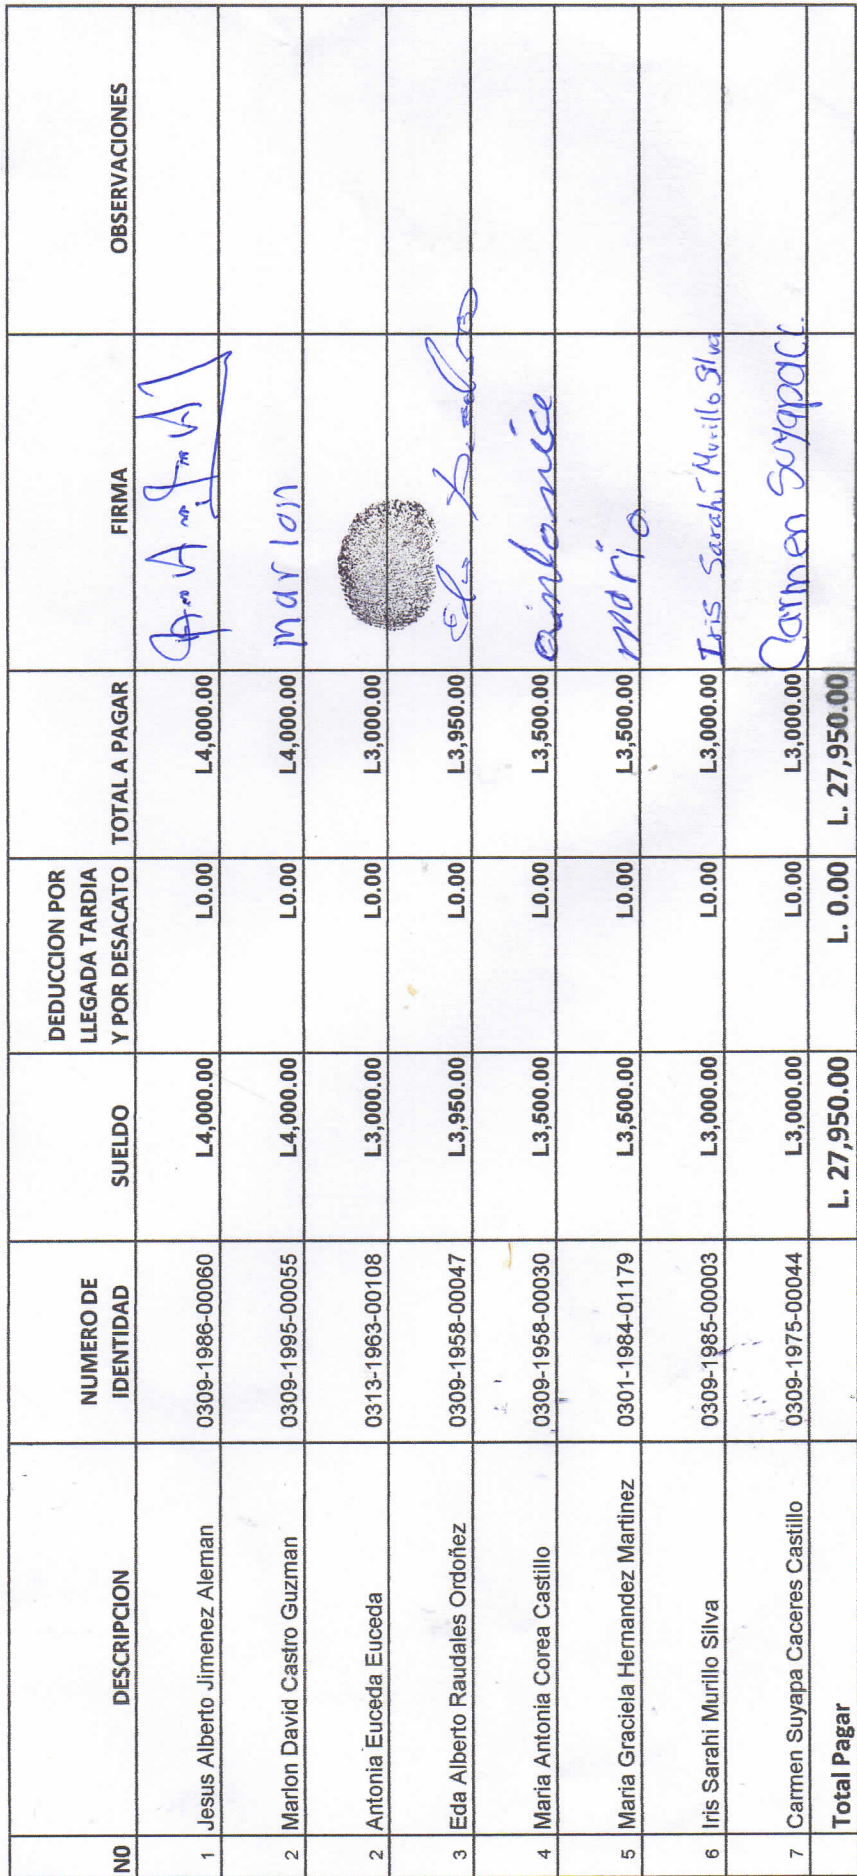 NO DESCRIPCION NUMERO DE IDENTIDAD SUELDO DEDUCCION POR LLEGADA TARDIA Y POR DESACATO TOTAL A PAGAR FIRMA OBSERVACIONES
1 Jesus Alberto Jimenez Aleman 0309-1986-00060 L4,000.00 L0.00 L4,000.00
2 Marlon David Castro Guzman 0309-1995-00055 L4,000.00 L0.00 L4,000.00 marlon
2 Antonia Euceda Euceda 0313-1963-00108 L3,000.00 L0.00 L3,000.00
3 Eda Alberto Raudales Ordoñez 0309-1958-00047 L3,950.00 L0.00 L3,950.00
4 Maria Antonia Corea Castillo 0309-1958-00030 L3,500.00 L0.00 L3,500.00
5 Maria Graciela Hernandez Martinez 0301-1984-01179 L3,500.00 L0.00 L3,500.00
6 Iris Sarahi Murillo Silva 0309-1985-00003 L3,000.00 L0.00 L3,000.00 Iris Sarahi Murillo Silva
7 Carmen Suyapa Caceres Castillo 0309-1975-00044 L3,000.00 L0.00 L3,000.00 Carmen Suyapa C.C.
Total Pagar L. 27,950.00 L. 0.00 L. 27,950.00